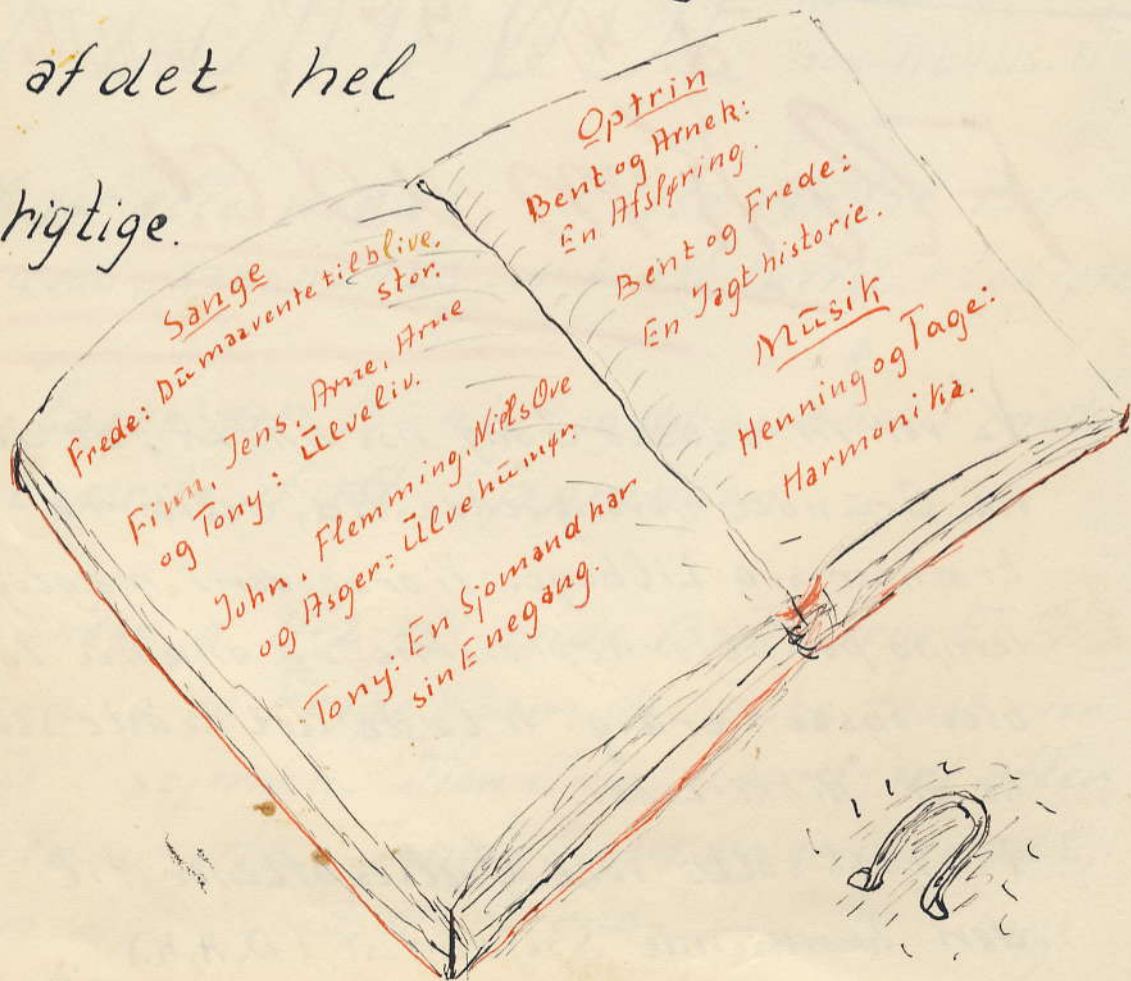 af det hel
rigtige.
Sange
Frede: Du maa vente til blive.
stor.
Finn, Jens, Arne, Arne
og Tony: Ulveliv.
John, Flemming, Niels Ove
og Asger: Ulvehumør.
Tony: En Sjømand har
sin Enegang.
Optrin
Bent og Arnek:
En Afsløring.
Bent og Frede:
En Jagthistorie.
Musik
Henning og Tage:
Harmonika.